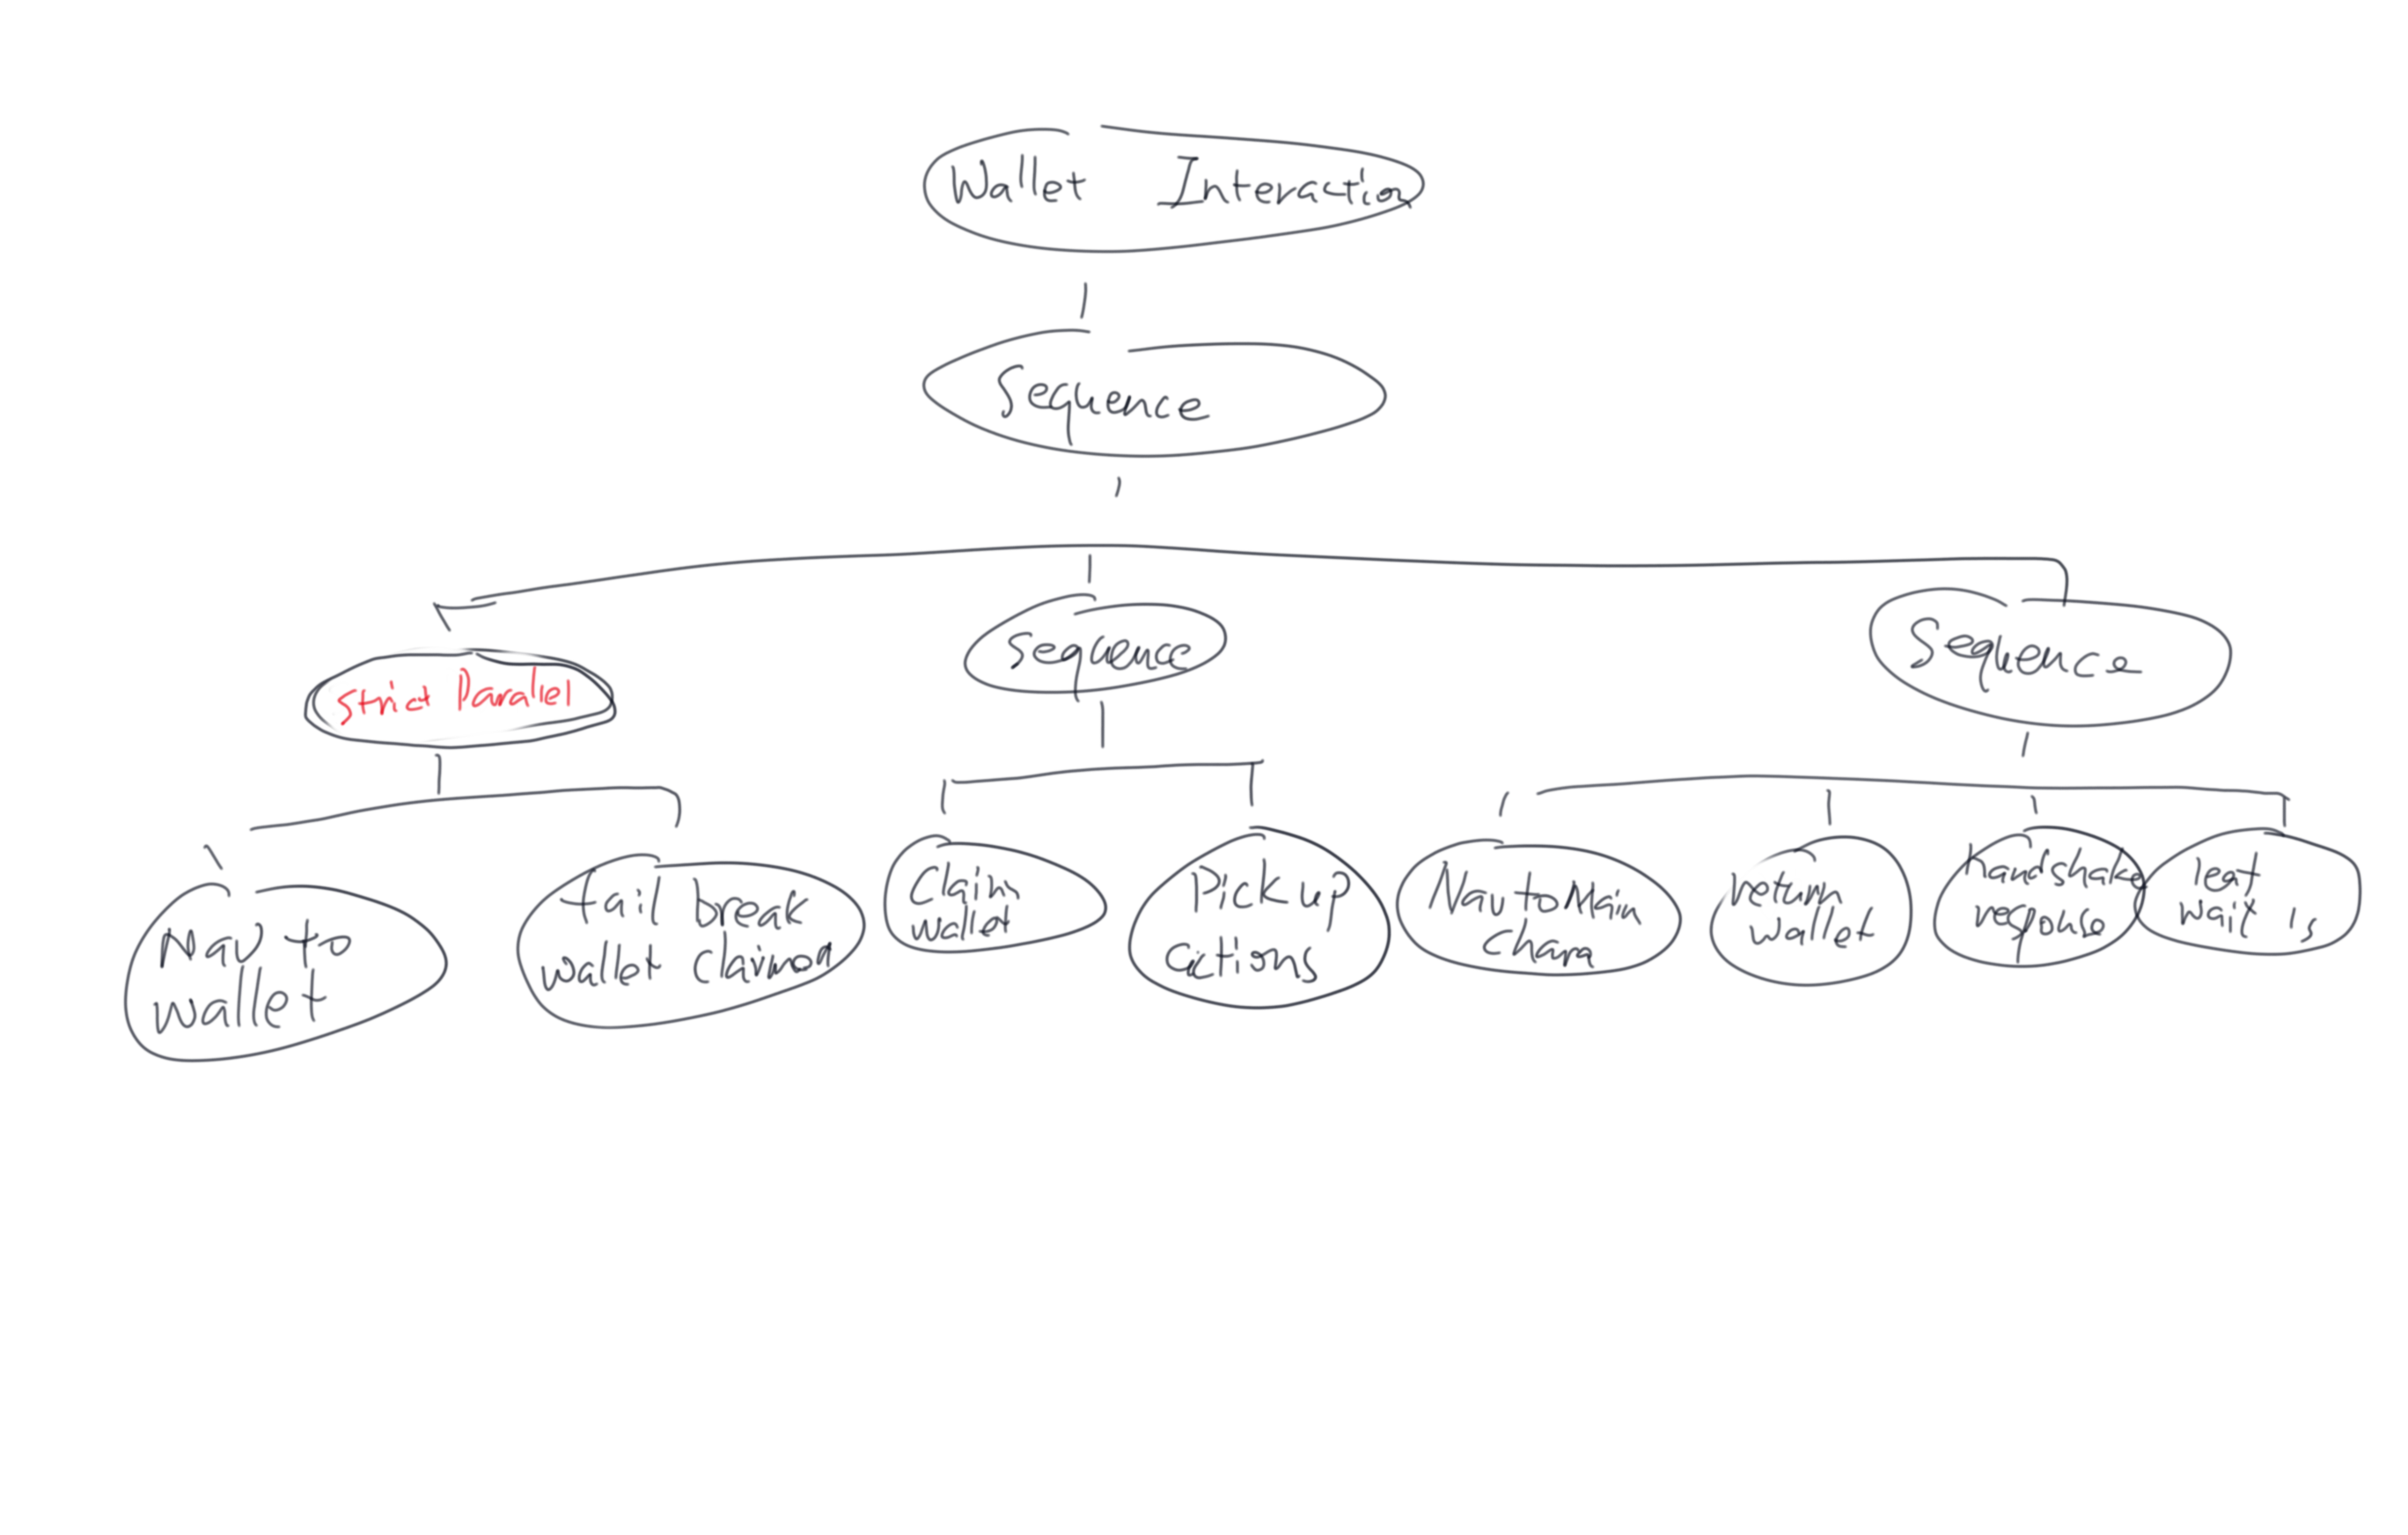 Wallet Interaction
Sequence
Strict Parallel
Sequence
Sequence
Nav to
wallet
fail break
wallet claimed
Claim
wallet
Pick up
actions
Nav to Main
Chara
return
wallet
handshake
response
leaf
wait 1s